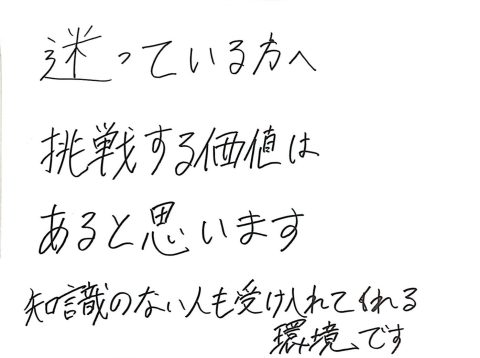 迷っている方へ
挑戦する価値は
あると思います
知識のない人も受け入れてくれる
環境です